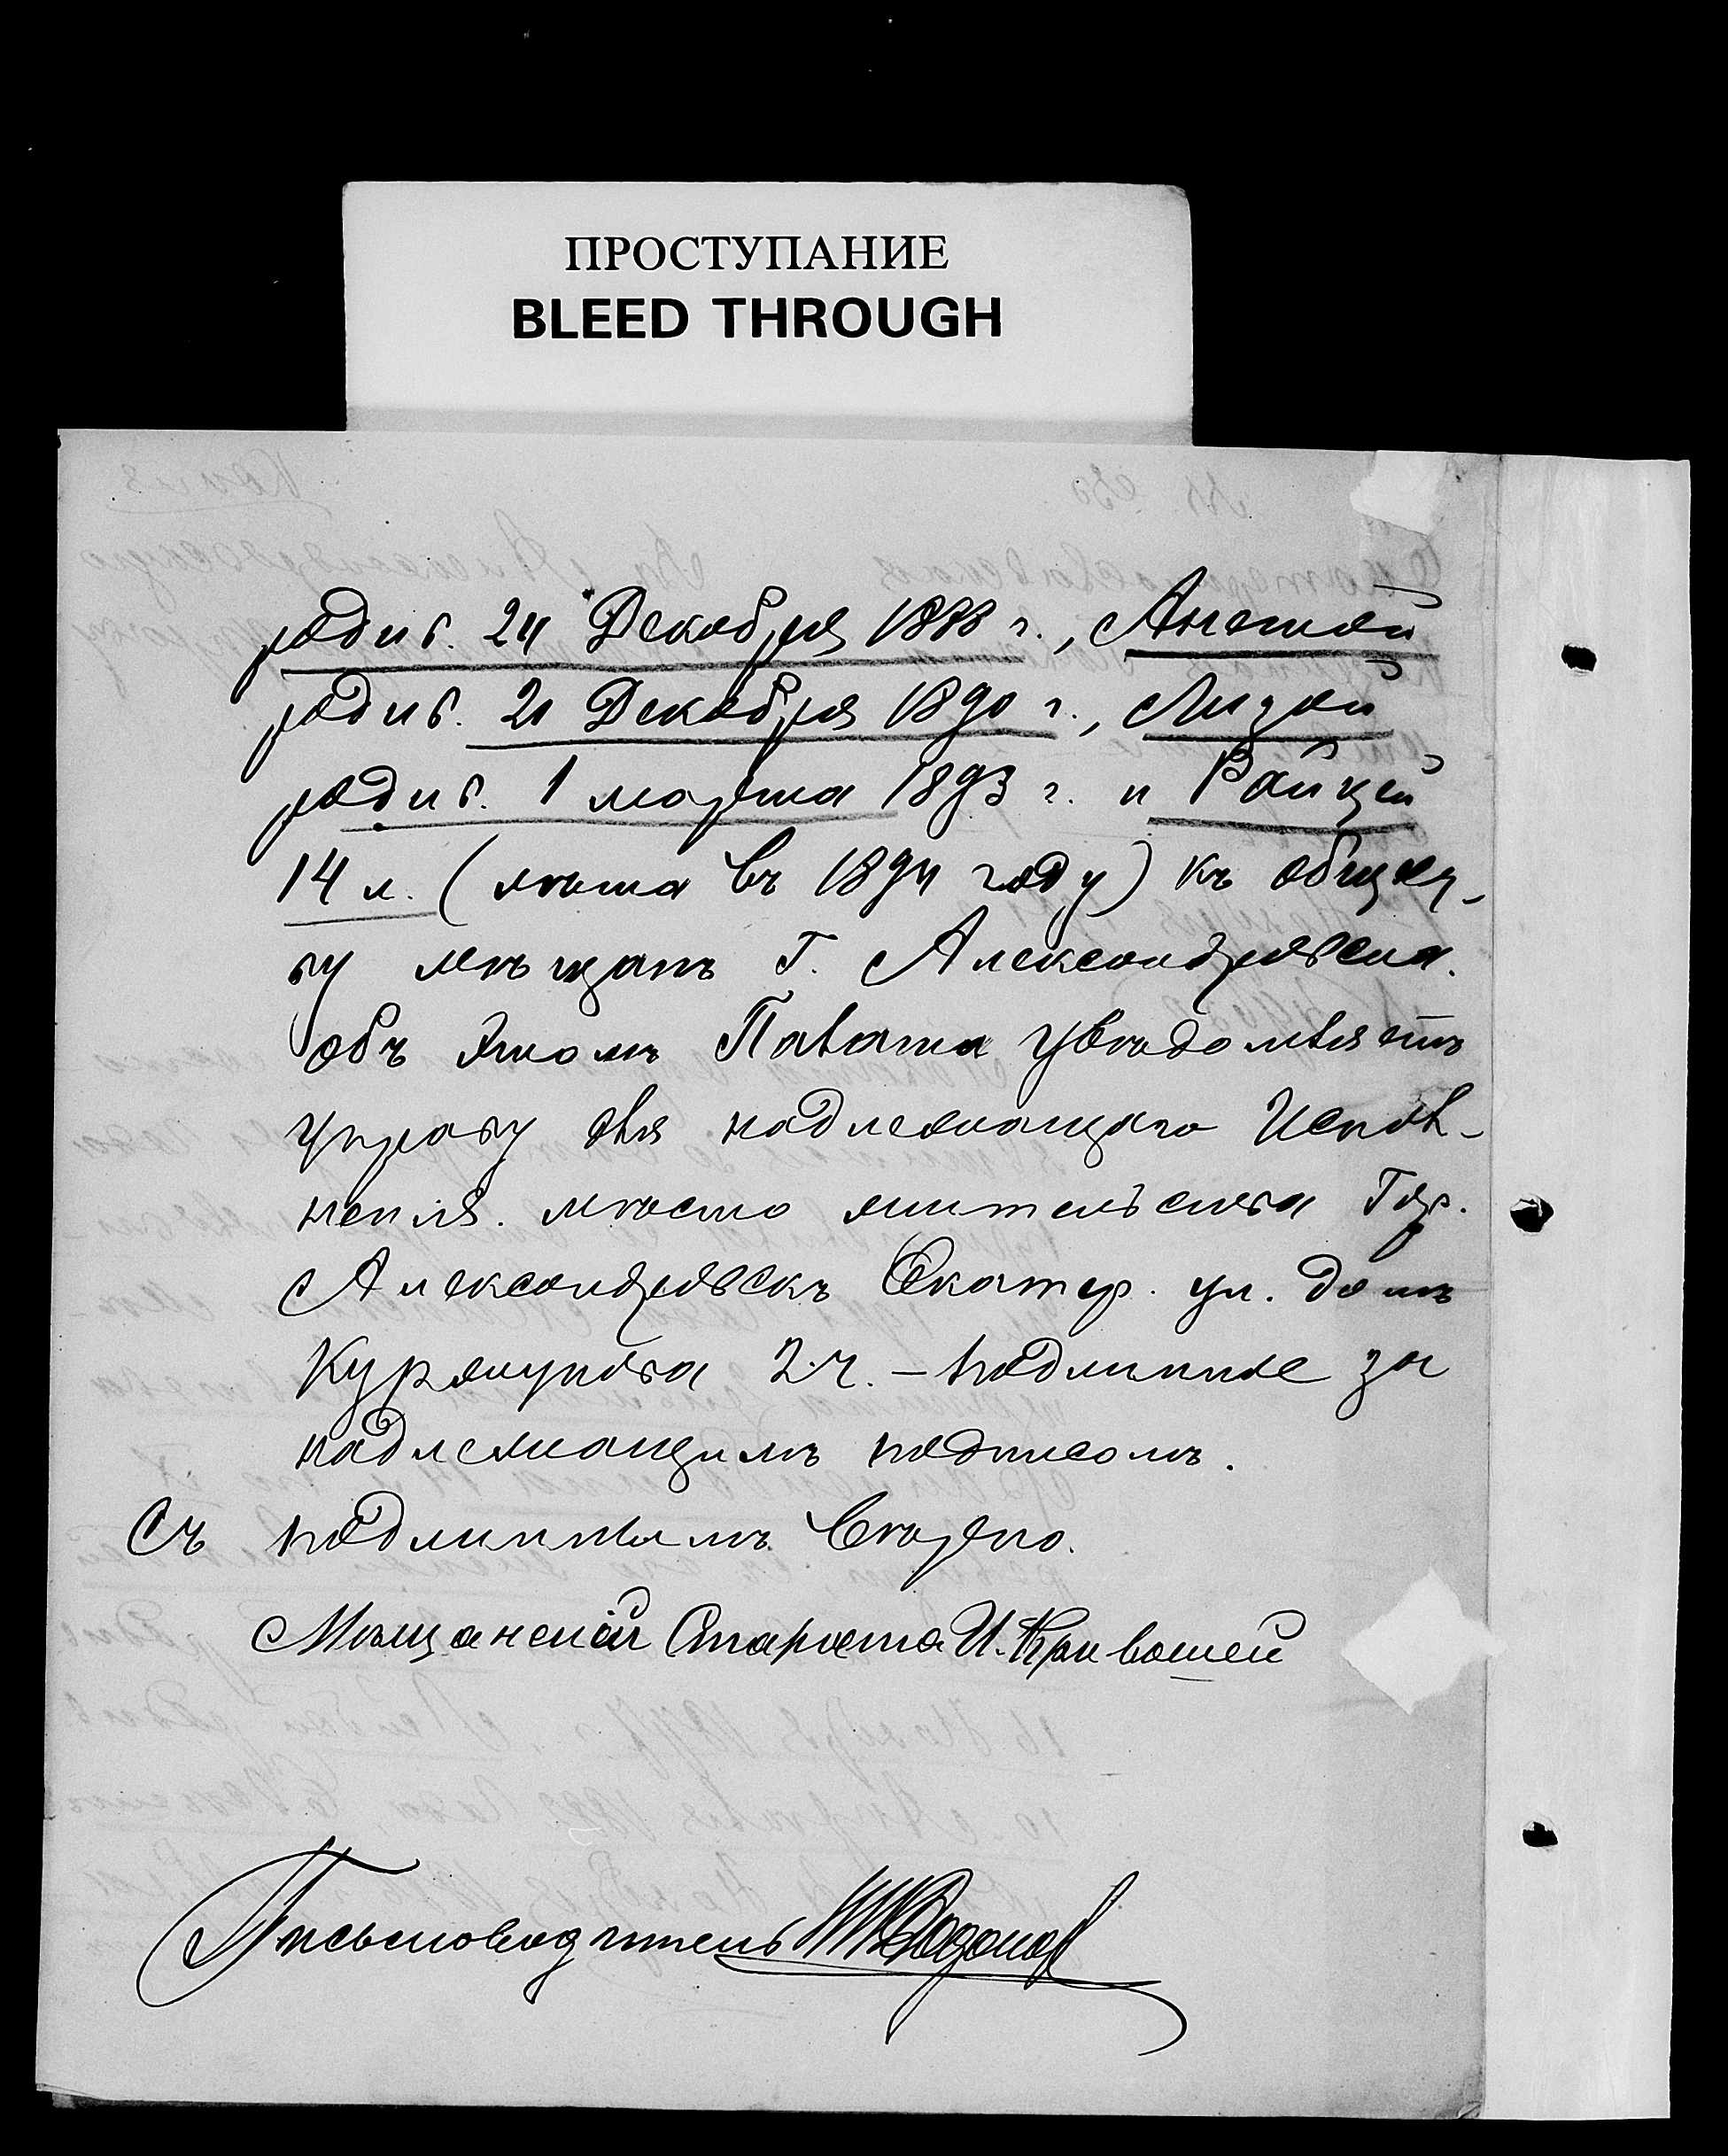 ПРОСТУПАНИЕ
BLEED THROUGH
родив. 24 Декабря 1888 г.,
родив. 21 Декабря 1890 г., Лизой
родив. 1 марта 1893 г. и Райцей
14 л. (лѣта въ 1894 году) къ общес-
ву мѣщанъ г. Александровска.
Объ этомъ Палата увѣдомляетъ
управу для надлежащаго Испол-
ненія. мѣсто жительства Гор.
Александровскъ Екатер. ул. домъ
2 ч. – подлинное за
надлежащимъ подписомъ.
Съ подлиннымъ вѣрно.
Мѣщанскій Староста И. Кривошей
Письмоводитель